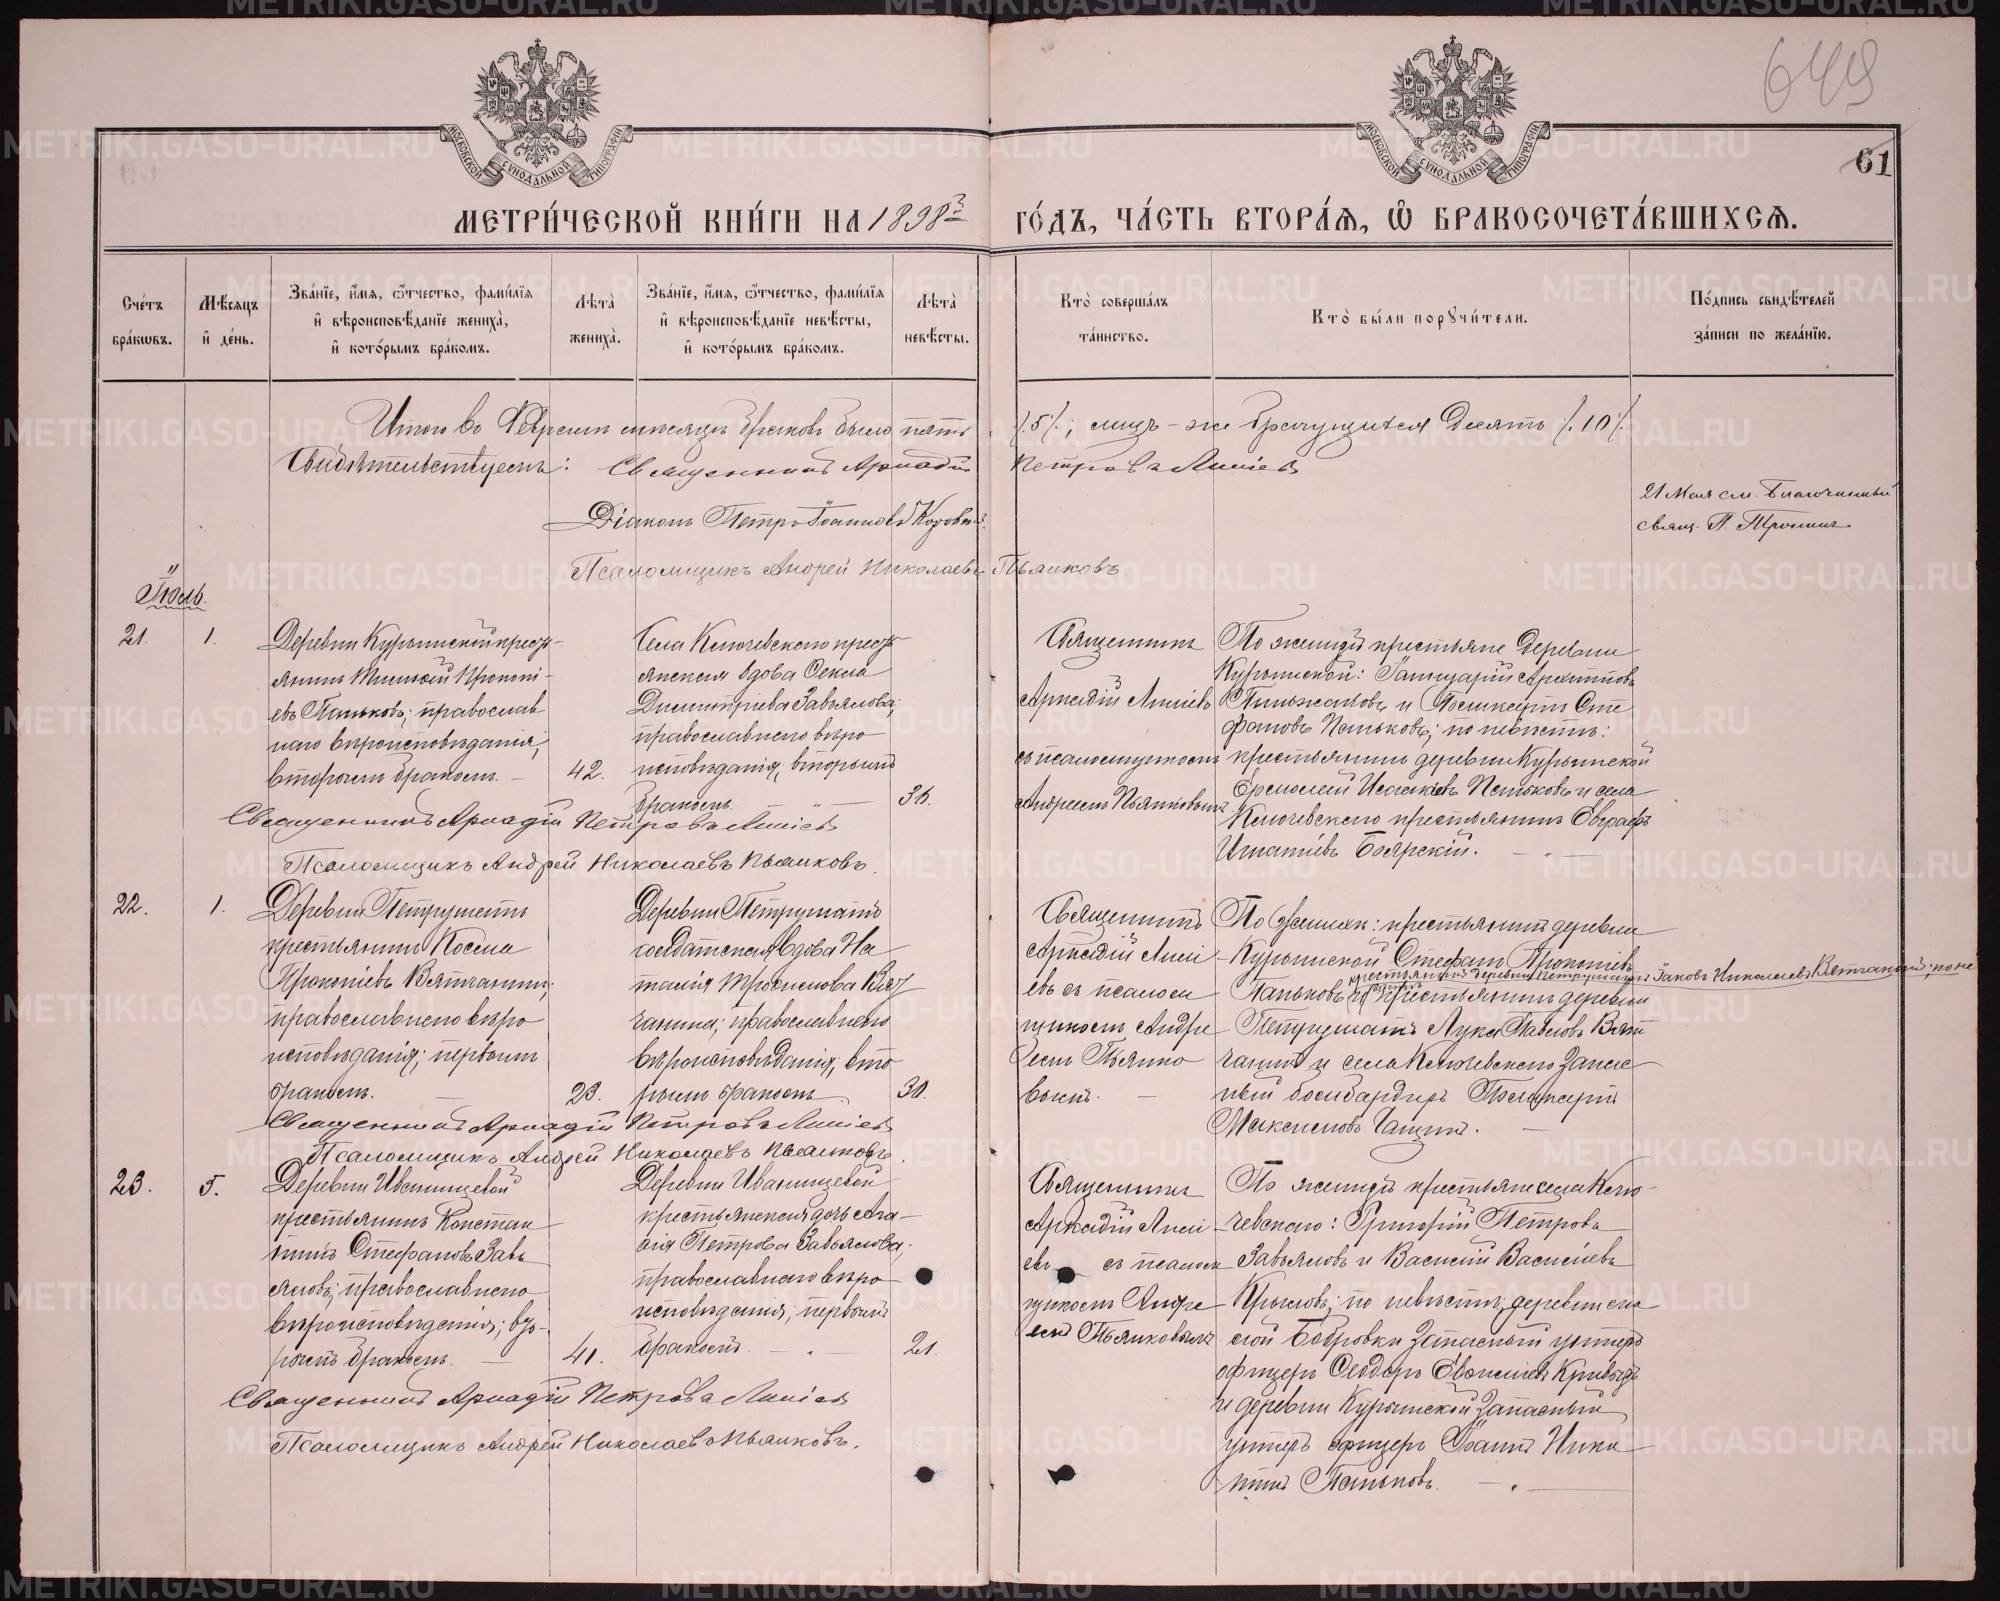 649
61
МОСКОВСКОЙ СѴНОДАЛЬНОЙ ТИПОГРАФІИ
МОСКОВСКОЙ СѴНОДАЛЬНОЙ ТИПОГРАФІИ
МЕТРИ́ЧЕСКОЙ КНИ́ГИ НА 1898й ГО́ДЪ, ЧА́СТЬ ВТОРА́Я, Ѡ БРАКОСОЧЕТА́ВШИХСѦ.
Сче́тъ бра́кѡвъ.
Мѣ́сяцъ и де́нь.
Зва́нїе, и́мѧ, ѻ҆́тчество, фами́лїѧ и вѣроисповѣ́данїе жениха̀, и кото́рымъ бра́комъ.
Лѣта̀ жениха̀.
Зва́нїе, и́мѧ, ѻ҆́тчество, фами́лїѧ и вѣроисповѣ́данїе невѣ́сты, и кото́рымъ бра́комъ.
Лѣта̀ невѣ́сты.
Кто̀ соверша́лъ та́инство.
Кто̀ бы́ли порꙋчи́тели.
По́дпись свидѣ́телей за́писи по жела́нїю.
Итого въ Февралѣ мѣсяцѣ браковъ было пять /.5/.; лицъ-же брачущихся десять /.10/.
Свидѣтельствуемъ: Священникъ Аркадій Петровъ
Діаконъ Петръ Іоанновъ Коровинъ.
Псаломщикъ Андрей Николаевъ Пьянковъ
21 Мая см. Благочинный
свящ. П.
Іюль.
21.
1.
Деревни Курьинской кресть-
янинъ Прокопі-
евъ Паньковъ; православ
наго вѣроисповѣданія;
вторымъ бракомъ.
42.
Села Ключевскаго кресть
янская вдова Ѳекла
Димитріева Завьялова;
православнаго вѣро
исповѣданія; вторымъ
бракомъ.
Священникъ
Аркадій
съ псаломщикомъ
Андреемъ Пьянковымъ
По женихѣ крестьяне деревни
Курьинской: Архиповъ
и Сте
фановъ Паньковъ; по невѣстѣ:
крестьянинъ деревни Курьинской
Ермолай Исааковъ Паньковъ и села
Ключевскаго крестьянинъ Евграфъ
Игнатіевъ Боярскій.
Священникъ Аркадій Петровъ
Псаломщикъ Андрей Николаевъ Пьянковъ.
22.
1.
Деревни Петрушатъ
крестьянинъ Косма
Прокопіевъ Вятчанинъ;
православнаго вѣро
исповѣданія; первымъ
бракомъ.
23.
Деревни Петрушатъ
солдатская вдова На
талія Вят
чанина; православнаго
вѣроисповѣданія; вто
рымъ бракомъ.
30.
Священникъ
Аркадій
евъ съ псалом
щикомъ Андре
емъ Пьянко
вымъ.
По женихѣ: крестьянинъ деревни
Курьинской Стефанъ Прокопіевъ
крестьянинъ деревни Петрушатъ Іаковъ Николаевъ Вятчанинъ; по не
Паньковъ крестьянинъ деревни
Петрушатъ Лука Павловъ Вят
чанинъ и села Ключевскаго запас
ный бомбардиръ
Максимовъ
Священникъ Аркадій Петровъ
Псаломщикъ Андрей Николаевъ Пьянковъ.
23.
5.
Деревни Иванищевой
крестьянинъ Констан
тинъ Стефановъ Завь
яловъ; православнаго
вѣроисповѣданія; вто-
рымъ бракомъ.
41.
Деревни Иванищевой
крестьянская дочь Ага-
ѳія Петрова Завьялова;
православнаго вѣро
исповѣданія; первымъ
бракомъ.
21.
Священникъ
Аркадій
евъ съ псалом
щикомъ Андре
емъ Пьянковымъ
По женихѣ крестьяне села Клю-
чевскаго: Григорій Петровъ
Завьяловъ и Василій Васильевъ
Крыловъ; по невѣстѣ: деревни
Бобровки запасный унтеръ
офицеръ Ѳеодоръ
и деревни Курьинской запасный
унтеръ офицеръ Іоаннъ Ники
тинъ Паньковъ.
Священникъ Аркадій Петровъ
Псаломщикъ Андрей Николаевъ Пьянковъ.
METRIKI.GASO-URAL.RU